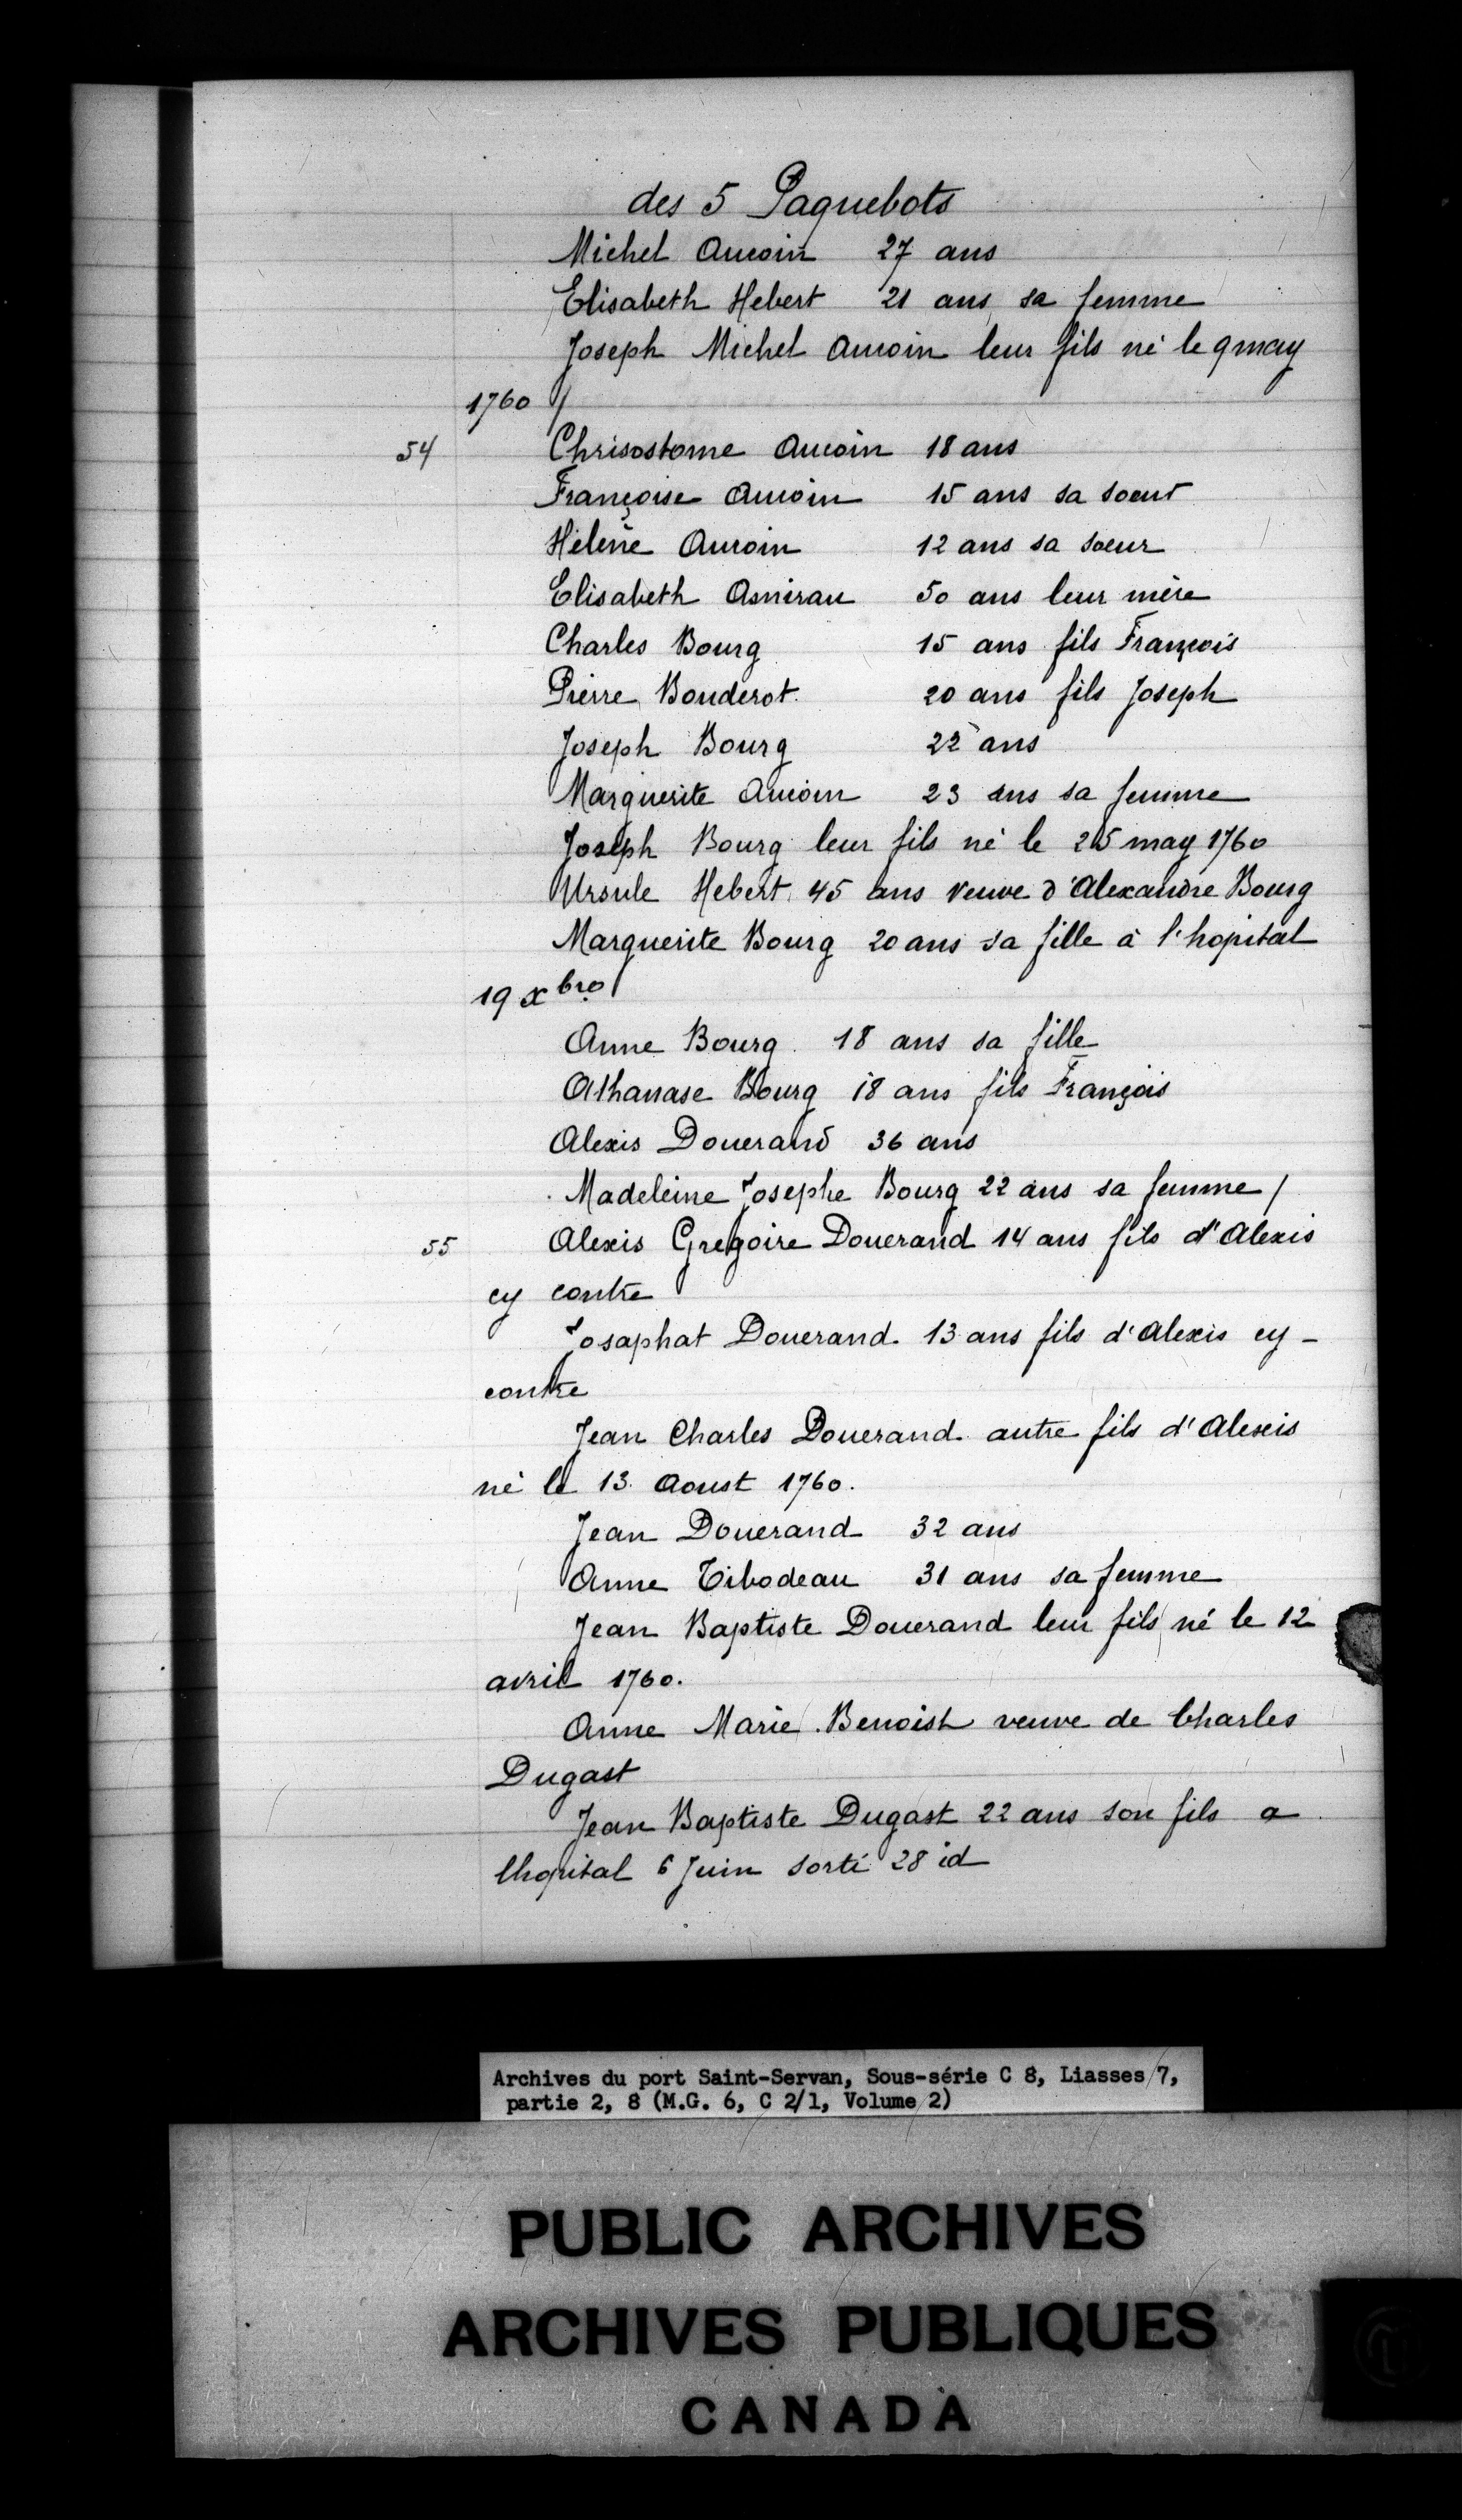 des 5 Paquebots
Michel Aucoin 27 ans
Elisabeth Hebert 21 ans sa femme
Joseph Michel Aucoin leur fils né le 9 may
1760 /
54 Chrisostome Aucoin 18 ans
Françoise Aucoin 15 ans sa soeur
Hélène Aucoin 12 ans sa soeur
Elisabeth Amirau 50 ans leur mère
Charles Bourg 15 ans fils François
Pierre Bouderot 20 ans fils Joseph
Joseph Bourg 22 ans
Marguerite Aucoin 23 ans sa femme
Joseph Bourg leur fils né le 25 may 1760
Ursule Hebert 45 ans veuve d'Alexandre Bourg
Marguerite Bourg 20 ans sa fille à l'hopital
19 xbre
Anne Bourg 18 ans sa fille
Athanase Bourg 18 ans fils François
Alexis Douerand 36 ans
Madeleine Josephe Bourg 22 ans sa femme /
55 Alexis Gregoire Douerand 14 ans fils d'Alexis
cy contre
Josaphat Douerand 13 ans fils d'Alexis cy-
contre
Jean Charles Douerand autre fils d'Alexis
né le 13 Aoust 1760.
Jean Douerand 32 ans
Anne Tibodeau 31 ans sa femme
Jean Baptiste Douerand leur fils né le 12
avril 1760.
Anne Marie Benoist veuve de Charles
Dugast
Jean Baptiste Dugast 22 ans son fils a
lhopital 6 Juin sorti 28 id
Archives du port Saint-Servan, Sous-série C 8, Liasses 7,
partie 2, 8 (M.G. 6, C 2/1, Volume 2)
PUBLIC ARCHIVES
ARCHIVES PUBLIQUES
CANADA